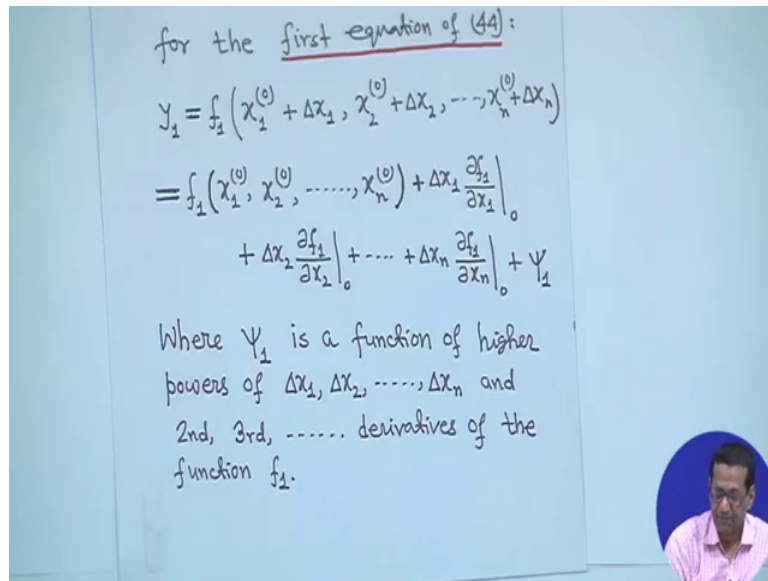 for the first equation of (44):
y₁ = f₁(x₁⁽⁰⁾ + Δx₁, x₂⁽⁰⁾ + Δx₂, ---, xₙ⁽⁰⁾ + Δxₙ)
= f₁(x₁⁽⁰⁾, x₂⁽⁰⁾, ......, xₙ⁽⁰⁾) + Δx₁ ∂f₁/∂x₁|₀
+ Δx₂ ∂f₁/∂x₂|₀ + ---- + Δxₙ ∂f₁/∂xₙ|₀ + Ψ₁
Where Ψ₁ is a function of higher
powers of Δx₁, Δx₂, ......, Δxₙ and
2nd, 3rd, ...... derivatives of the
function f₁.